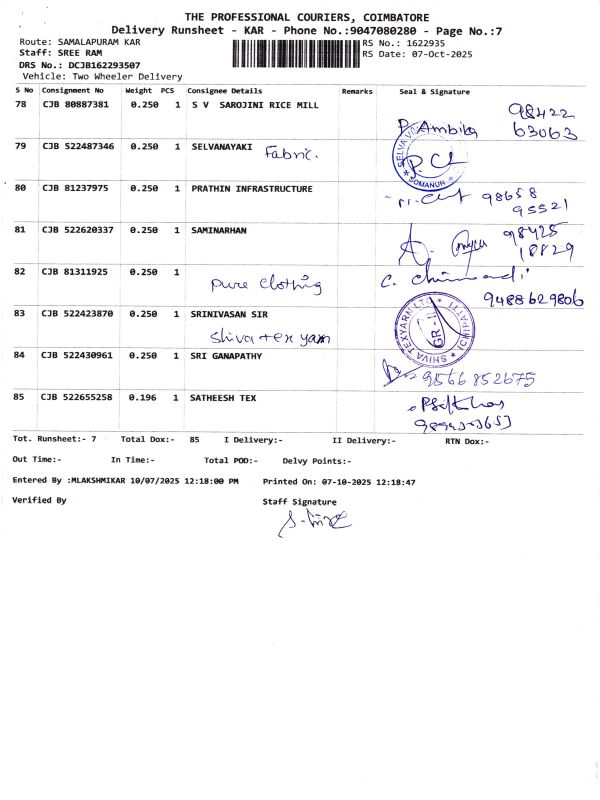 THE PROFESSIONAL COURIERS, COIMBATORE
Delivery Runsheet - KAR - Phone No.:9047080280 - Page No.:7
Route: SAMALAPURAM KAR
RS No.: 1622935
Staff: SREE RAM
RS Date: 07-Oct-2025
DRS No.: DCJB162293507
Vehicle: Two Wheeler Delivery
S No Consignment No Weight PCS Consignee Details Remarks Seal & Signature
78 CJB 80887381 0.250 1 S V SAROJINI RICE MILL
P. Ambika 98422
63063
79 CJB 522487346 0.250 1 SELVANAYAKI
Fabric.
SOMANUR
80 CJB 81237975 0.250 1 PRATHIN INFRASTRUCTURE
98658
95521
81 CJB 522620337 0.250 1 SAMINARHAN
98425
18829
82 CJB 81311925 0.250 1
Pure Clothing
9488629806
83 CJB 522423870 0.250 1 SRINIVASAN SIR
Shiva tex yarn
SHIVA TEXYARN LTD
GR-II
84 CJB 522430961 0.250 1 SRI GANAPATHY
9566852675
85 CJB 522655258 0.196 1 SATHEESH TEX
Tot. Runsheet:- 7 Total Dox:- 85 I Delivery:- II Delivery:- RTN Dox:-
Out Time:- In Time:- Total POD:- Delvy Points:-
Entered By :MLAKSHMIKAR 10/07/2025 12:18:00 PM Printed On: 07-10-2025 12:18:47
Verified By Staff Signature